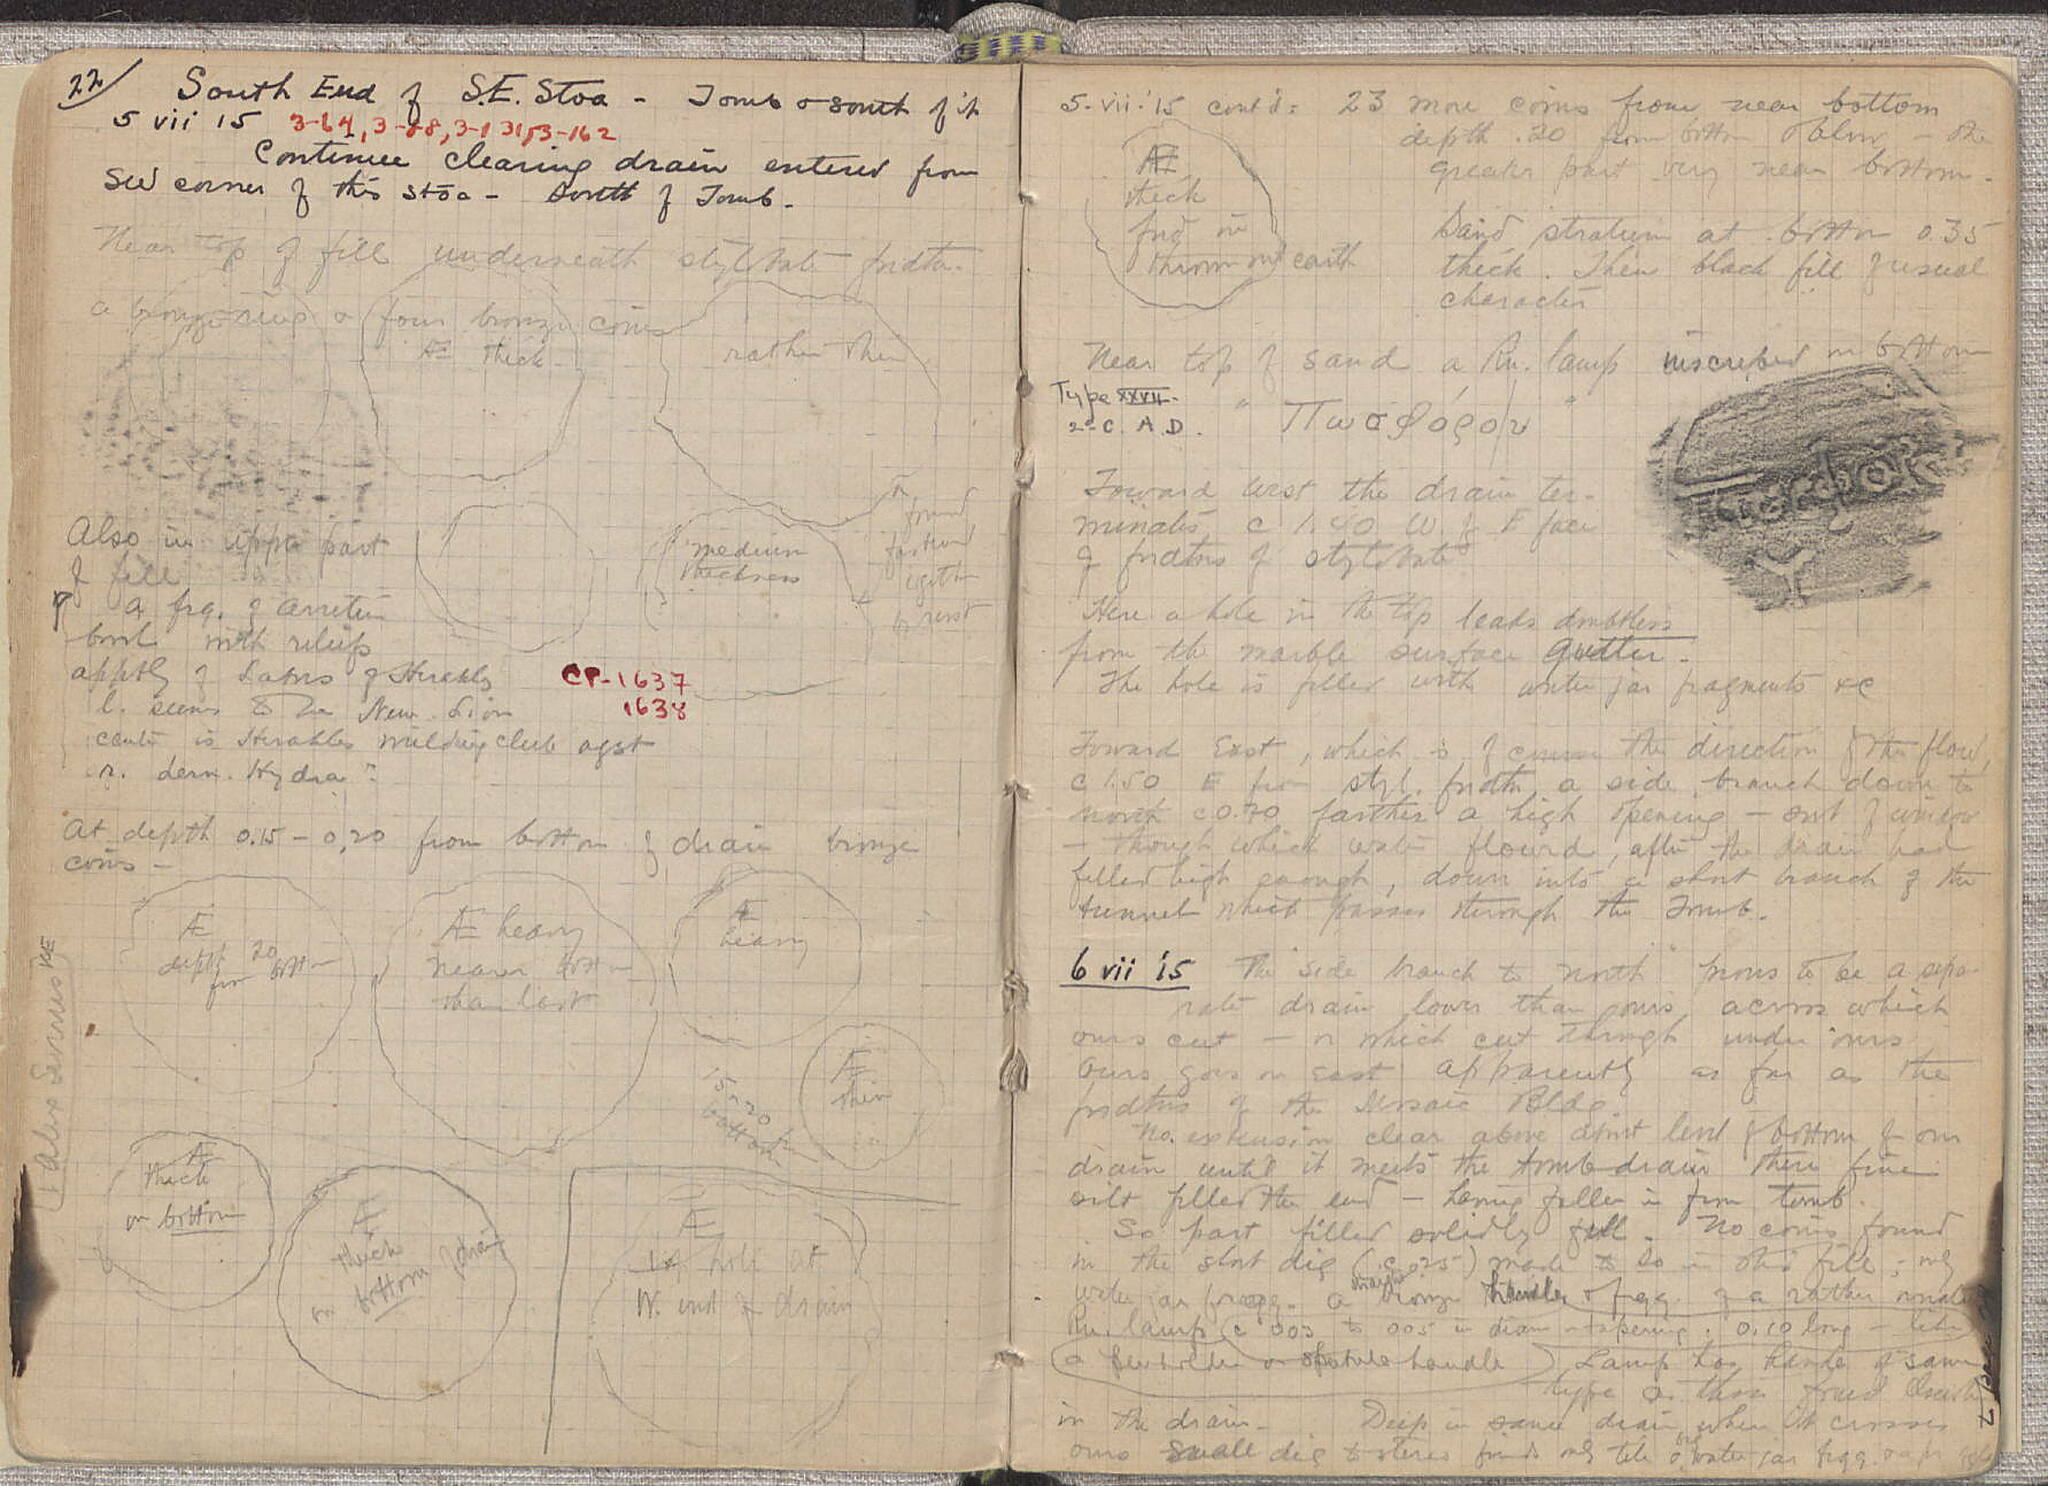 22/ South End of S.E. Stoa - Tomb & south of it
5 vii 15 3-64, 3-88, 3-131, 3-162
Continue clearing drain entered from
SW corner of this stoa - South of Tomb.
Near top of fill underneath stylobate fndtn.
a bronze ring & four bronze coins
Æ thick
rather thin
found
fastened
together
by rust
medium
thickness
Also in upper part
of fill
a frg. of Arretine
bowl with reliefs
apptly of Labors of Herakles
l. seems to be Nem. Lion
center is Herakles wielding club agst
r. Lern. Hydra?
CP-1637
1638
At depth 0.15 - 0.20 from bottom of drain bronze
coins -
Æ
depth 20
from bottom
Æ heavy
nearer bottom
than last
Æ
heavy
Æ
thin
15-20 fr
bottom
1 Alex Severus
Æ
thick
on bottom
Æ
thick
on bottom of drain
Æ
in hole at
W. end of drain
5-vii-'15 cont'd: 23 more coins from near bottom
depth .20 from bottom & below - the
greater part very near bottom.
Æ
thick
fnd in
thrown out earth
Sand stratum at bottom 0.35
thick. Then black fill of usual
character
Near top of sand a Rn. lamp inscribed on bottom
Type XXVII.
2nd C. A.D.
" Πωσφόρου "
Toward west the drain ter-
minates c 1.40 W. of E face
of fndtns of stylobate
Here a hole in the top leads doubtless
from the marble surface gutter.
The hole is filled with water jar fragments &c
Toward East, which is of course the direction of the flow,
c 1.50 E from styl. fndtn a side branch down to
north c 0.70 farther a high opening - sort of window
- through which water flowed, after the drain had
filled high enough, down into a short branch of the
tunnel which passes through the Tomb.
6 vii 15 The "side branch to north" proves to be a sepa-
rate drain lower than ours across which
ours cut - or which cut through under ours
Ours goes on east apparently as far as the
fndtns of the Mosaic Bldg.
No. extension clear above about level of bottom of our
drain until it meets the tomb drain there fine
silt filled the end - having fallen in from tomb.
So part filled solidly full. No coins found
in the short dig (c 0.25) made to So in this fill; only
water jar fragg. a bronze handle & fragg. of a rather ornate
Rn. lamp (c 003 to 005 in diam - tapering. 0.10 long - like
a penholder or spatula handle) Lamp has handle of same
type as those found
in the drain. Deep in same drain, where it crosses
ours small dig to stereo finds only tile & water jar fragg.